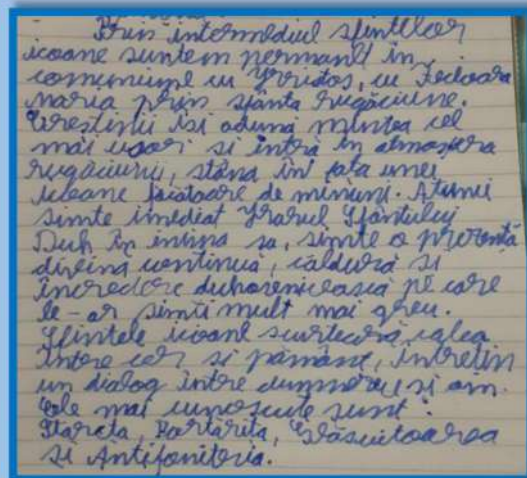 Prin intermediul sfintelor
icoane suntem permanent in
comuniune cu Hristos, cu Fecioara
Maria prin sfânta rugăciune.
Creștinii isi adună mintea cel
mai usor si intră in atmosfera
rugăciunii, stând în fata unei
icoane făcătoare de minuni. Atunci
simte imediat Harul Sfântului
Duh în inima sa, simte o prezență
divină continuă, căldură si
încredere duhovnicească pe care
le-ar simti mult mai greu.
Sfintele icoane scurtează calea
între cer si pământ, întretin
un dialog între dumnezeu si om.
Cele mai cunoscute sunt:
Portarița,
si Antifonitria.